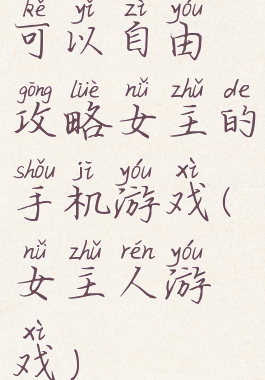 kě yǐ zì yóu
可以自由
gōng lüè nǚ zhǔ de
攻略女主的
shǒu jī yóu xì
手机游戏(
nǚ zhǔ rén yóu
女主人游
xì
戏)